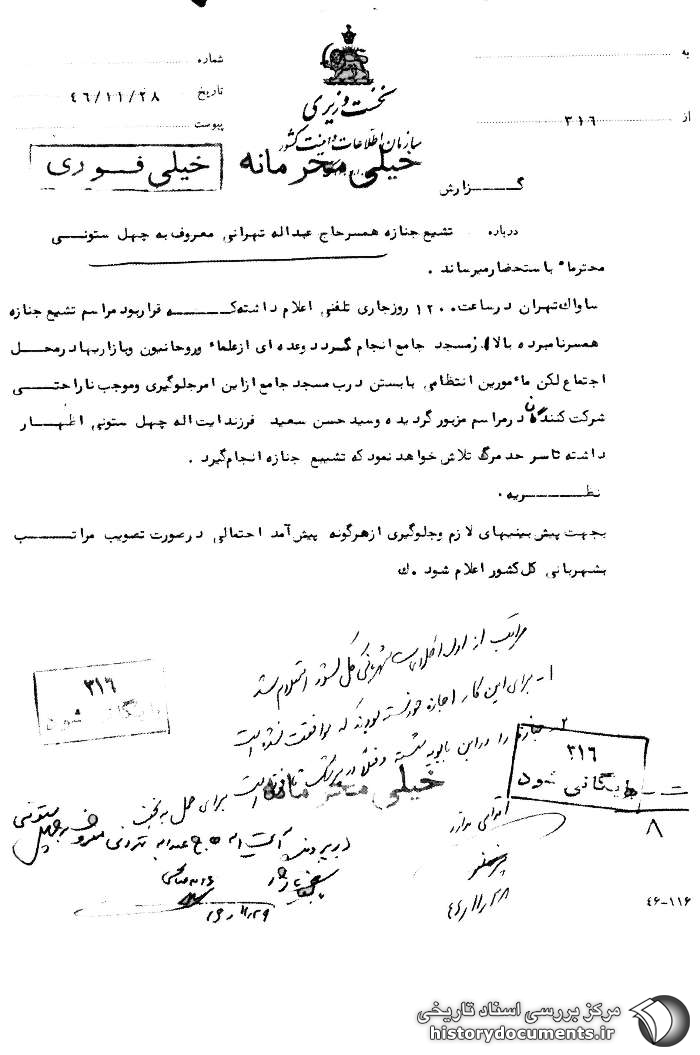 به
شماره
نخست وزیری
تاریخ ۴۶/۱۱/۲۸
از ۳۱۶
پیوست
سازمان اطلاعات و امنیت کشور
خیلی محرمانه
خیلی فوری
گزارش
درباره تشیع جنازه همسر حاج عبداله تهرانی معروف به چهل ستونی
محترماً باستحضار میرساند .
ساواك تهران در ساعت ۱۲۰۰ روز جاری تلفنی اعلام داشته که قرار بود مراسم تشیع جنازه
همسر نامبرده بالا از مسجد جامع انجام گردد و عده ای از علماء و روحانیون و بازاریها در محل
اجتماع لکن مأمورین انتظامی با بستن درب مسجد جامع از این امر جلوگیری و موجب ناراحتی
شرکت کنندگان در مراسم مزبور گردیده و سید حسن سعید فرزند ایت اله چهل ستونی اظهار
داشته تا سر حد مرگ تلاش خواهد نمود که تشییع جنازه انجام گیرد .
نظریه .
بجهت پیش بینیهای لازم و جلوگیری از هرگونه پیش آمد احتمالی در صورت تصویب مراتب
بشهربانی کل کشور اعلام شود . ك
مراتب از اداره اطلاعات شهربانی کل کشور استعلام شد
۱- برای این کار اجازه خواسته بودند که موافقت نشده است
۲- جنازه را در ابن بابویه شسته و فعلاً در
است برای حمل به نجف
۳۱۶
بایگانی شود
۳۱۶
بایگانی شود
خیلی محرمانه
اقدامی ندارد
۴۶/۱۱/۲۸
در پرونده آیت اله حاج عبداله تهرانی معروف به چهل ستونی
۴۶/۱۱/۲۹
۸
۴۶-۱۱۶
مرکز بررسی اسناد تاریخی
historydocuments.ir